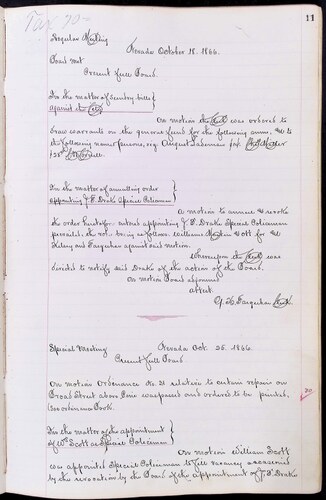 Tax 70
11
Regular Meeting
Nevada October 18, 1866.
Board met
Present full Board.
In the matter of sundry bills
against the City
On motion the Clerk was ordered to
draw warrants on the general fund for the following sums, to
the following named persons, viz: August
In the matter of annulling order
appointing J. F. Drake Special Policeman
A motion to annul & revoke
the order heretofore entered appointing J. F. Drake Special Policeman
prevailed, the vote being as follows. Williams
and Farquhar against said motion.
Whereupon the Clerk was
directed to notify said Drake of the action of the Board.
On motion Board adjourned
attest.
Farquhar Clerk
Special Meeting
Nevada Oct. 25. 1866.
Present full Board
On motion Ordinance No. 21 relative to certain repairs on
Broad Street above Pine was passed and ordered to be printed.
See ordinance Book.
In the matter of the appointment
of Wm Scott as Special Policeman
On motion William Scott
was appointed Special Policeman to fill vacancy occasioned
by the revocation by the Board of the appointment of J. F. Drake